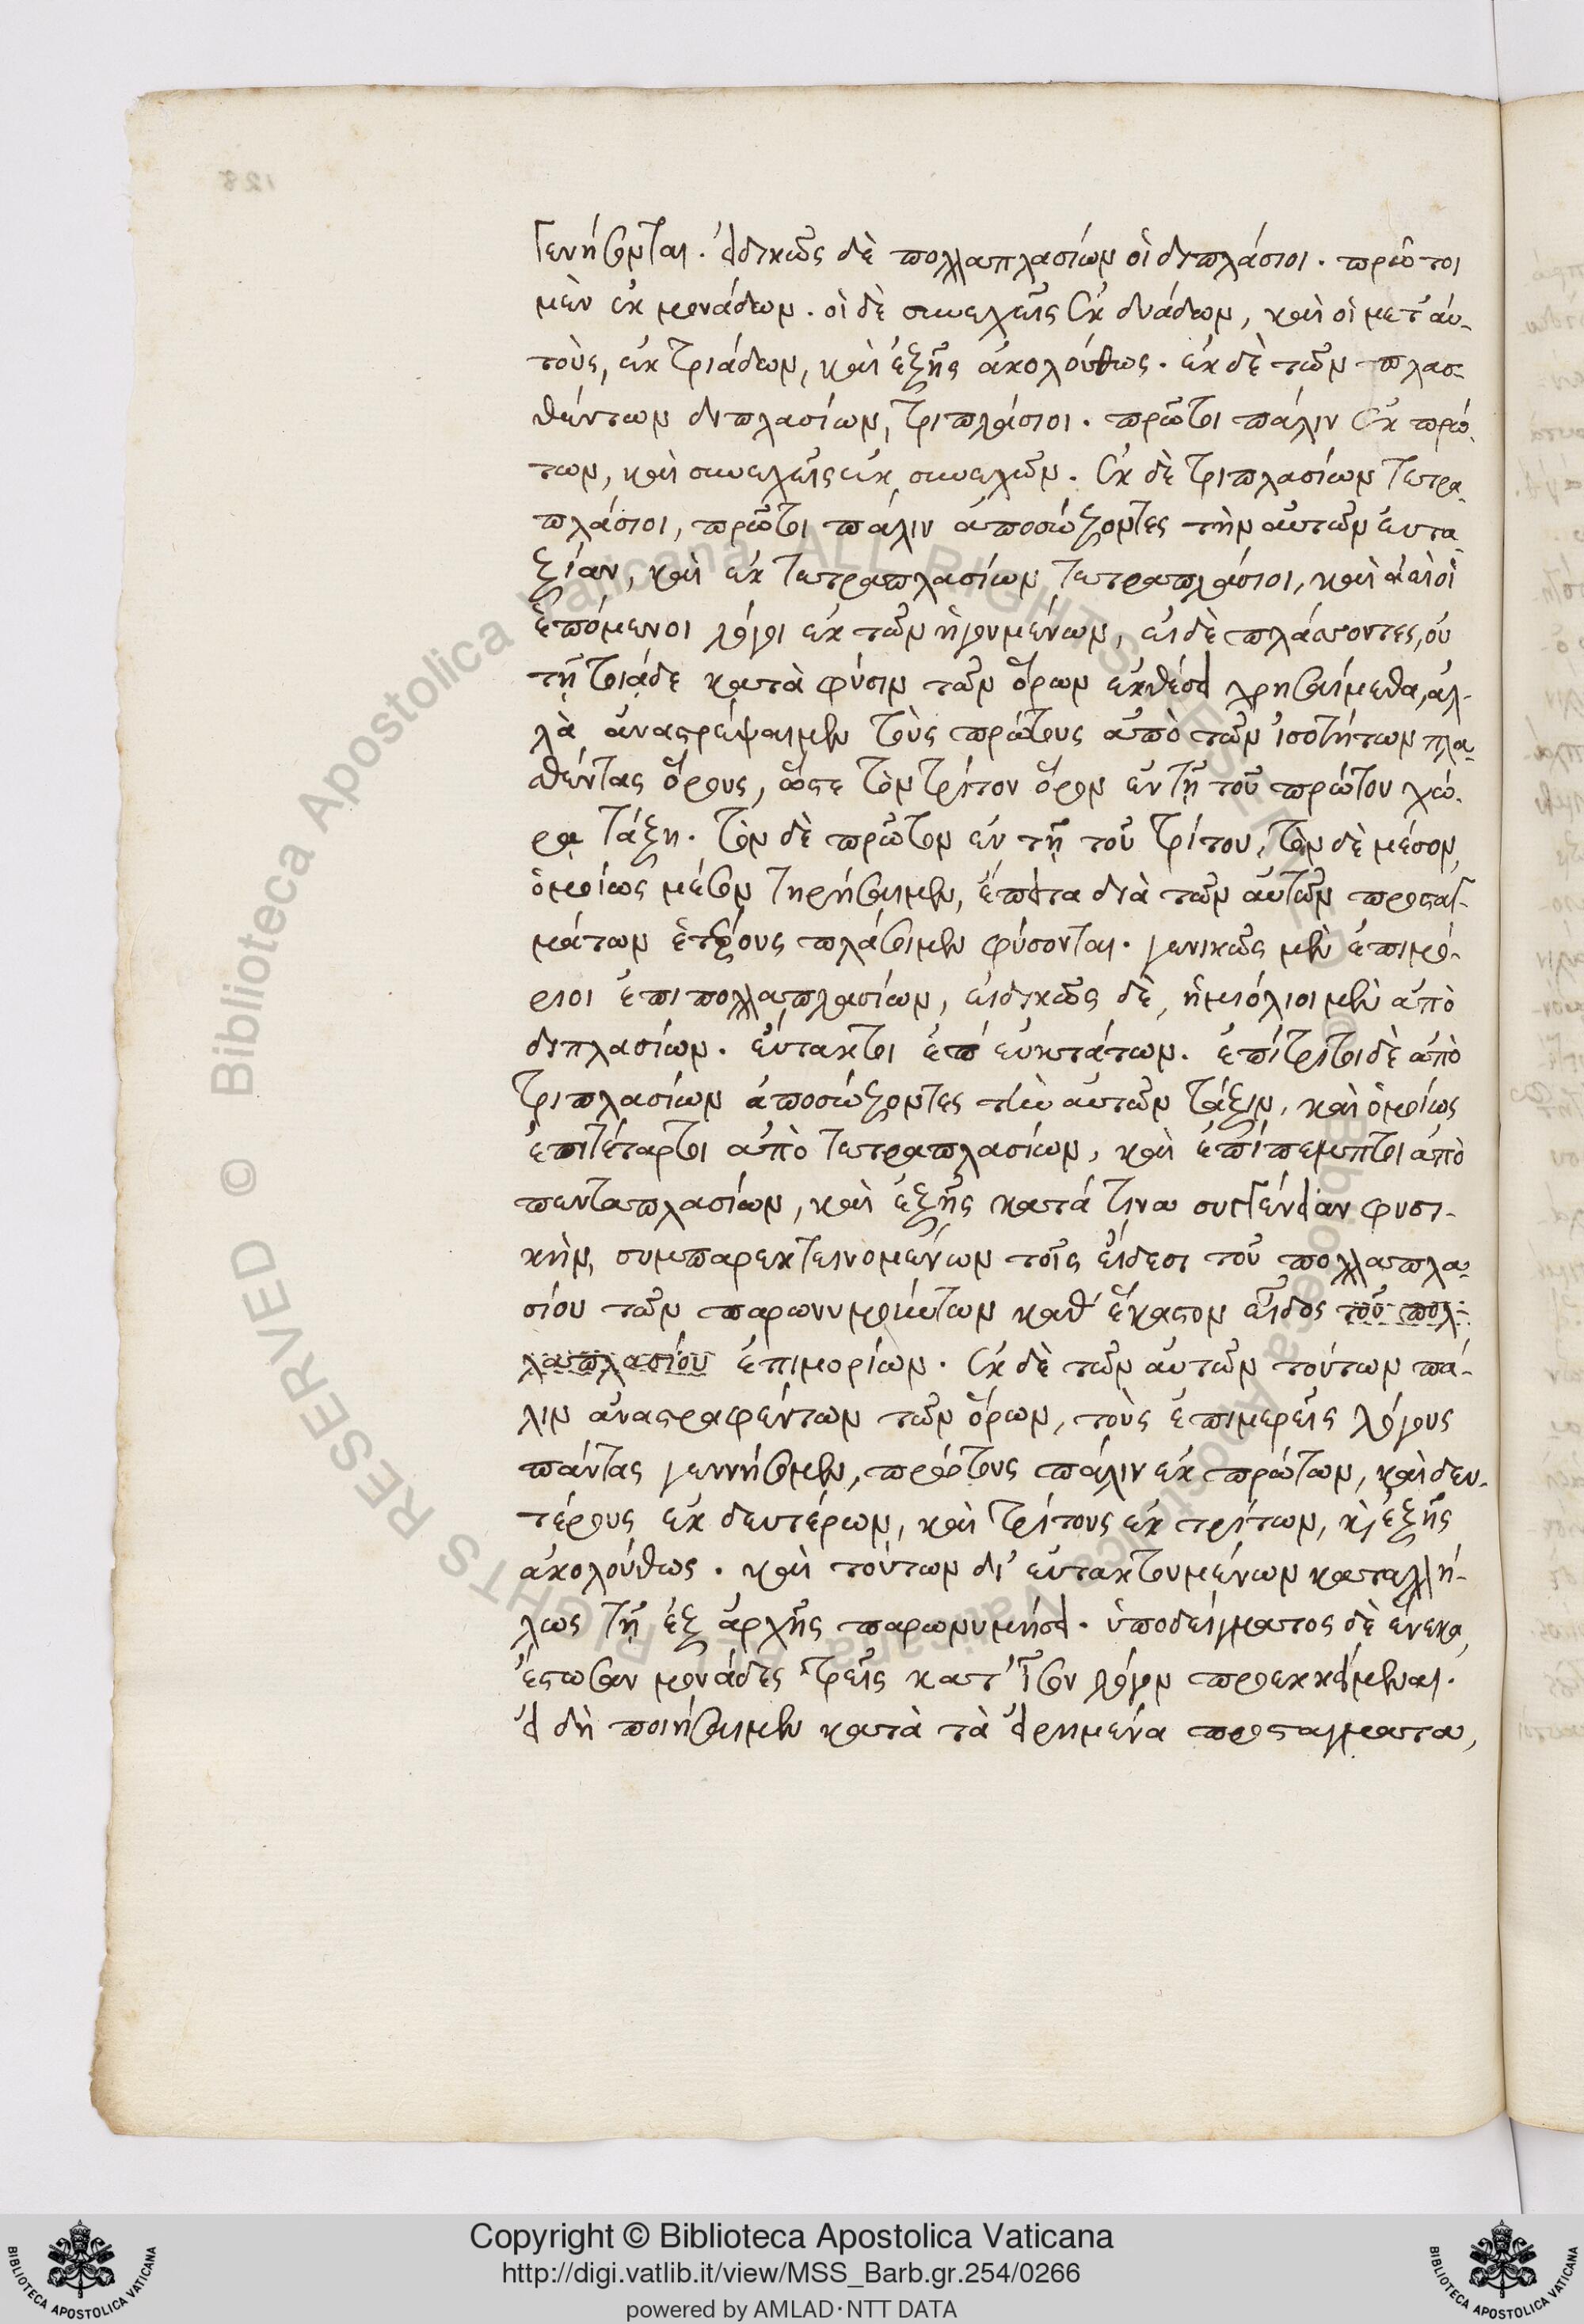 γενήσονται. εἰδικῶς δὲ πολλαπλασίων οἱ διπλάσιοι. πρῶτοι
μὲν ἐκ μονάδων. οἱ δὲ συνεχεῖς ἐκ δυάδων, καὶ οἱ μετ' αὐ-
τοὺς, ἐκ τριάδων, καὶ ἑξῆς ἀκολούθως. ἐκ δὲ τῶν πλασ-
θέντων διπλασίων, τριπλάσιοι. πρῶτοι πάλιν ἐκ πρώ-
των, καὶ συνεχεῖς ἐκ συνεχῶν. ἐκ δὲ τριπλασίων τετρα-
πλάσιοι, πρῶτοι πάλιν ἀποσώζοντες τὴν αὐτῶν εὐτα-
ξίαν, καὶ ἐκ τετραπλασίων τετραπλάσιοι, καὶ ἀεὶ οἱ
ἑπόμενοι λόγοι ἐκ τῶν ἡγουμένων, εἰ δὲ πλάσσοντες, οὐ
τῇ τοιᾷδε κατὰ φύσιν τῶν ὅρων ἐκθέσει χρησαίμεθα, ἀλ-
λὰ ἀναστρέψαιμεν τοὺς πρώτους ἀπὸ τῶν ἰσοτήτων πλα-
θέντας ὅρους, ὥστε τὸν τρίτον ὅρον ἐν τῇ τοῦ πρώτου χώ-
ρᾳ τάξῃ. τὸν δὲ πρῶτον ἐν τῇ τοῦ τρίτου, τὸν δὲ μέσον,
ὁμοίως μέσον τηρήσαιμεν, ἔπειτα διὰ τῶν αὐτῶν προσταγ-
μάτων ἑτέρους πλάσοιμεν φύσονται. γενικῶς μὲν ἐπιμό-
ριοι ἐπιπολλαπλασίων, εἰδικῶς δὲ, ἡμιόλιοι μὲν ἀπὸ
διπλασίων. εὔτακτοι ἐπ' εὐκτάτων. ἐπίτριτοι δὲ ἀπὸ
τριπλασίων ἀποσώζοντες τὴν αὐτῶν τάξιν, καὶ ὁμοίως
ἐπιτέταρτοι ἀπὸ τετραπλασίων, καὶ ἐπίπεμπτοι ἀπὸ
πενταπλασίων, καὶ ἑξῆς κατά τινα συγγένειαν φυσι-
κὴν, συμπαρεκτεινομένων τοῖς εἴδεσι τοῦ πολλαπλα-
σίου τῶν παρωνυμούντων καθ' ἕκαστον εἶδος τοῦ πολ-
λαπλασίου ἐπιμορίων. ἐκ δὲ τῶν αὐτῶν τούτων πά-
λιν ἀναστραφέντων τῶν ὅρων, τοὺς ἐπιμερεῖς λόγους
πάντας γεννήσομεν, πρώτους πάλιν ἐκ πρώτων, καὶ δευ-
τέρους ἐκ δευτέρων, καὶ τρίτους ἐκ τρίτων, κ̀ ἑξῆς
ἀκολούθως. καὶ τούτων δι' εὐτακτουμένων καταλλή-
λως τῇ ἐξ ἀρχῆς παρωνυμήσει. ὑποδείγματος δὲ ἕνεκα,
ἔστωσαν μονάδες τρεῖς κατ' ἴσον λόγον προεκκείμεναι.
εἰ δὴ ποιήσαιμεν κατὰ τὰ εἰρημένα προσταγματα,
128
Copyright © Biblioteca Apostolica Vaticana
http://digi.vatlib.it/view/MSS_Barb.gr.254/0266
powered by AMLAD·NTT DATA